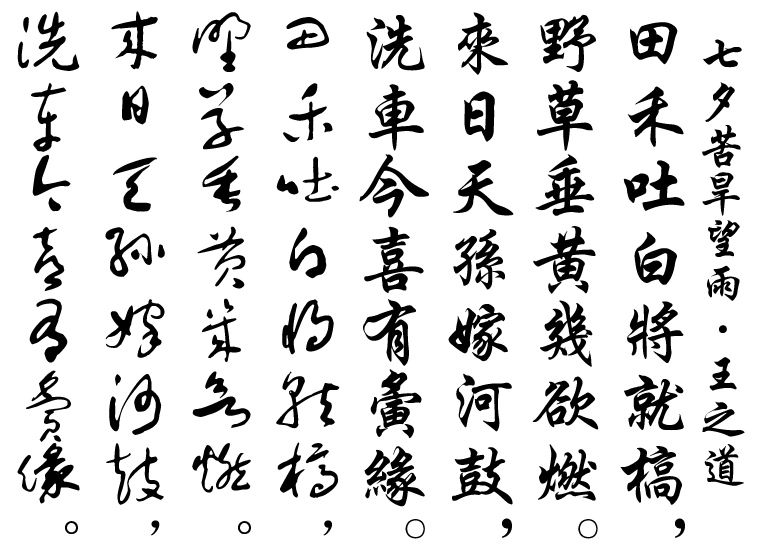 七夕苦旱望雨・王之道
田禾吐白將就槁，
野草垂黃幾欲燃。
來日天孫嫁河鼓，
洗車今喜有夤緣。
田禾吐白將就槁，
野草垂黃幾欲燃。
來日天孫嫁河鼓，
洗車今喜有夤緣。